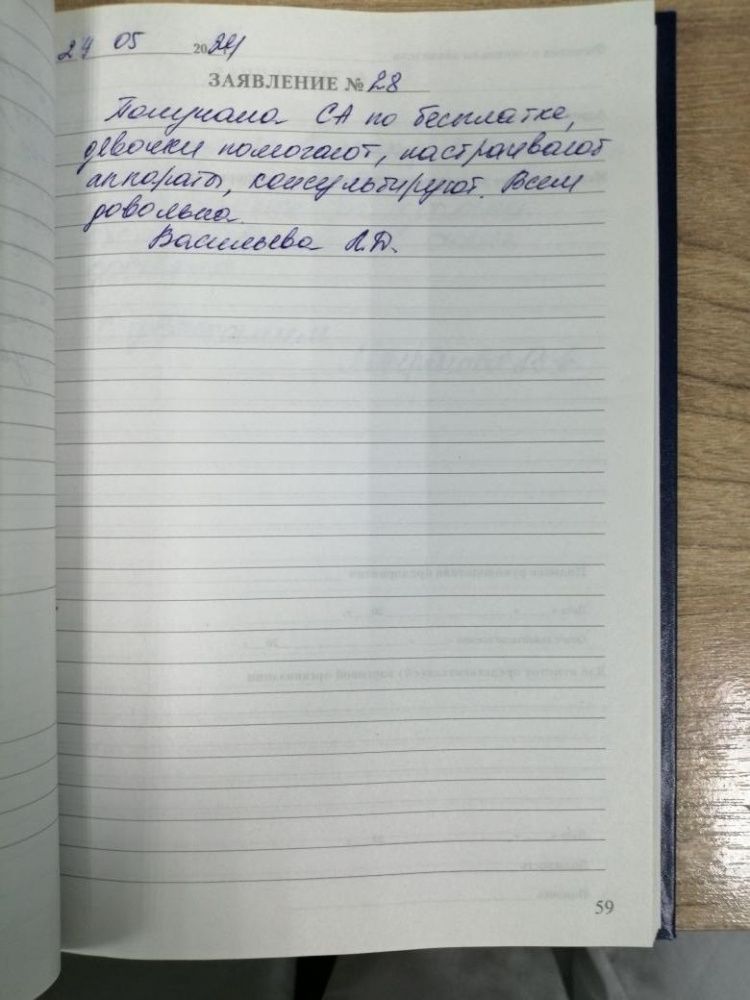 27 05 2024
ЗАЯВЛЕНИЕ № 28
Получала СА по бесплатке,
девочки помогают, настраивают
аппараты, консультируют. Всем
довольна.
Васильева Л.Д.
59